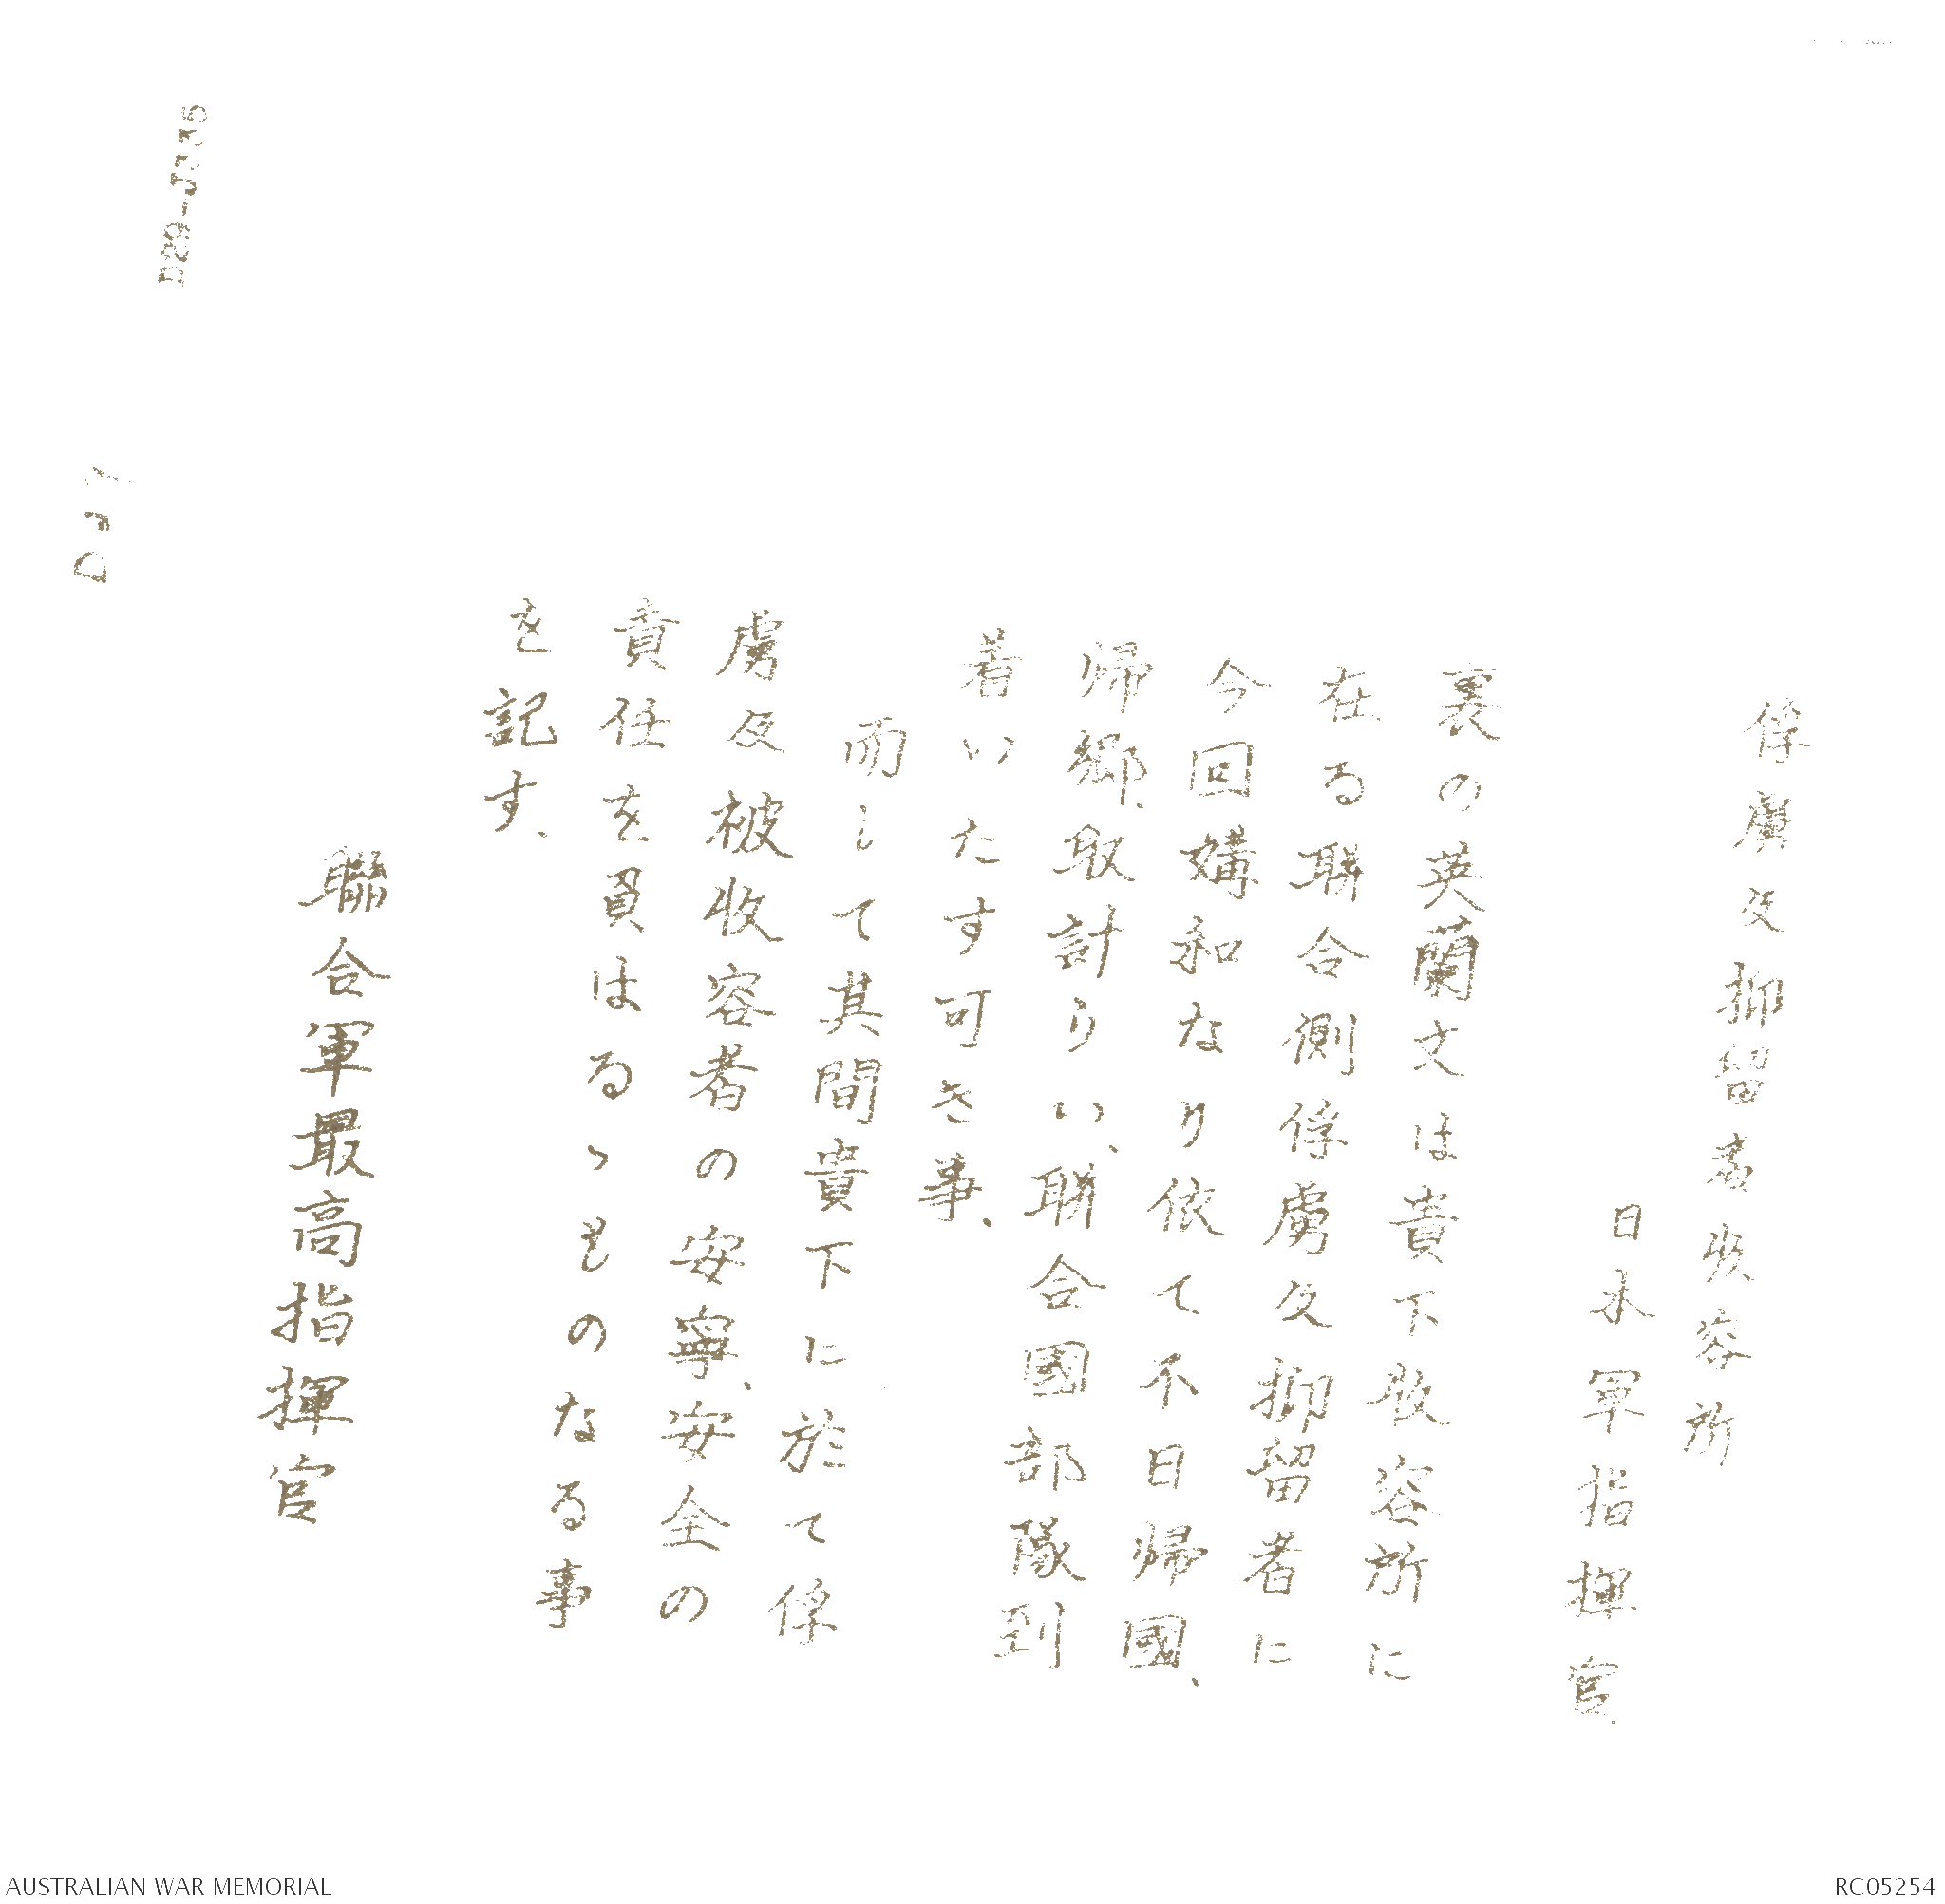 俘虜及抑留者收容所
日本軍指揮官
裏の英蘭文は貴下收容所に
在る聯合側俘虜及抑留者に
今回媾和なり依て不日帰國、
帰郷、取計らい、聯合國部隊到
着いたす可き事、
而して其間貴下に於て俘
虜及被收容者の安寧、安全の
責任を負はるゝものなる事
を記す、
聯合軍最高指揮官
AUSTRALIAN WAR MEMORIAL
RC05254